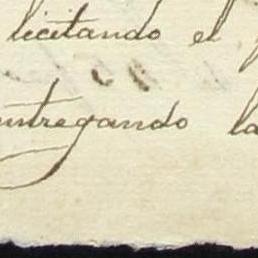 licitando el
entregando la